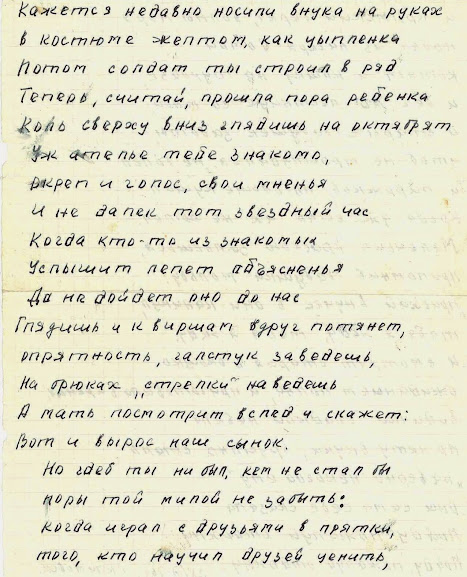 Кажется недавно носили внука на руках
в костюме желтом, как цыпленка
Потом солдат ты строил в ряд
Теперь, считай, прошла пора ребенка
Коль сверху вниз глядишь на октябрят
Уж ателье тебе знакомо,
окреп и голос, свои мненья
И не далек тот звездный час
Когда кто-то из знакомых
Услышит лепет объясненья
Да не дойдет оно до нас
Глядишь и к виршам вдруг потянет,
опрятность, галстук заведешь,
На брюках „стрелки" наведешь
А мать посмотрит вслед и скажет:
Вот и вырос наш сынок.
Но где б ты ни был, кем не стал бы
поры той милой не забыть:
когда играл с друзьями в прятки,
того, кто научил друзей ценить,